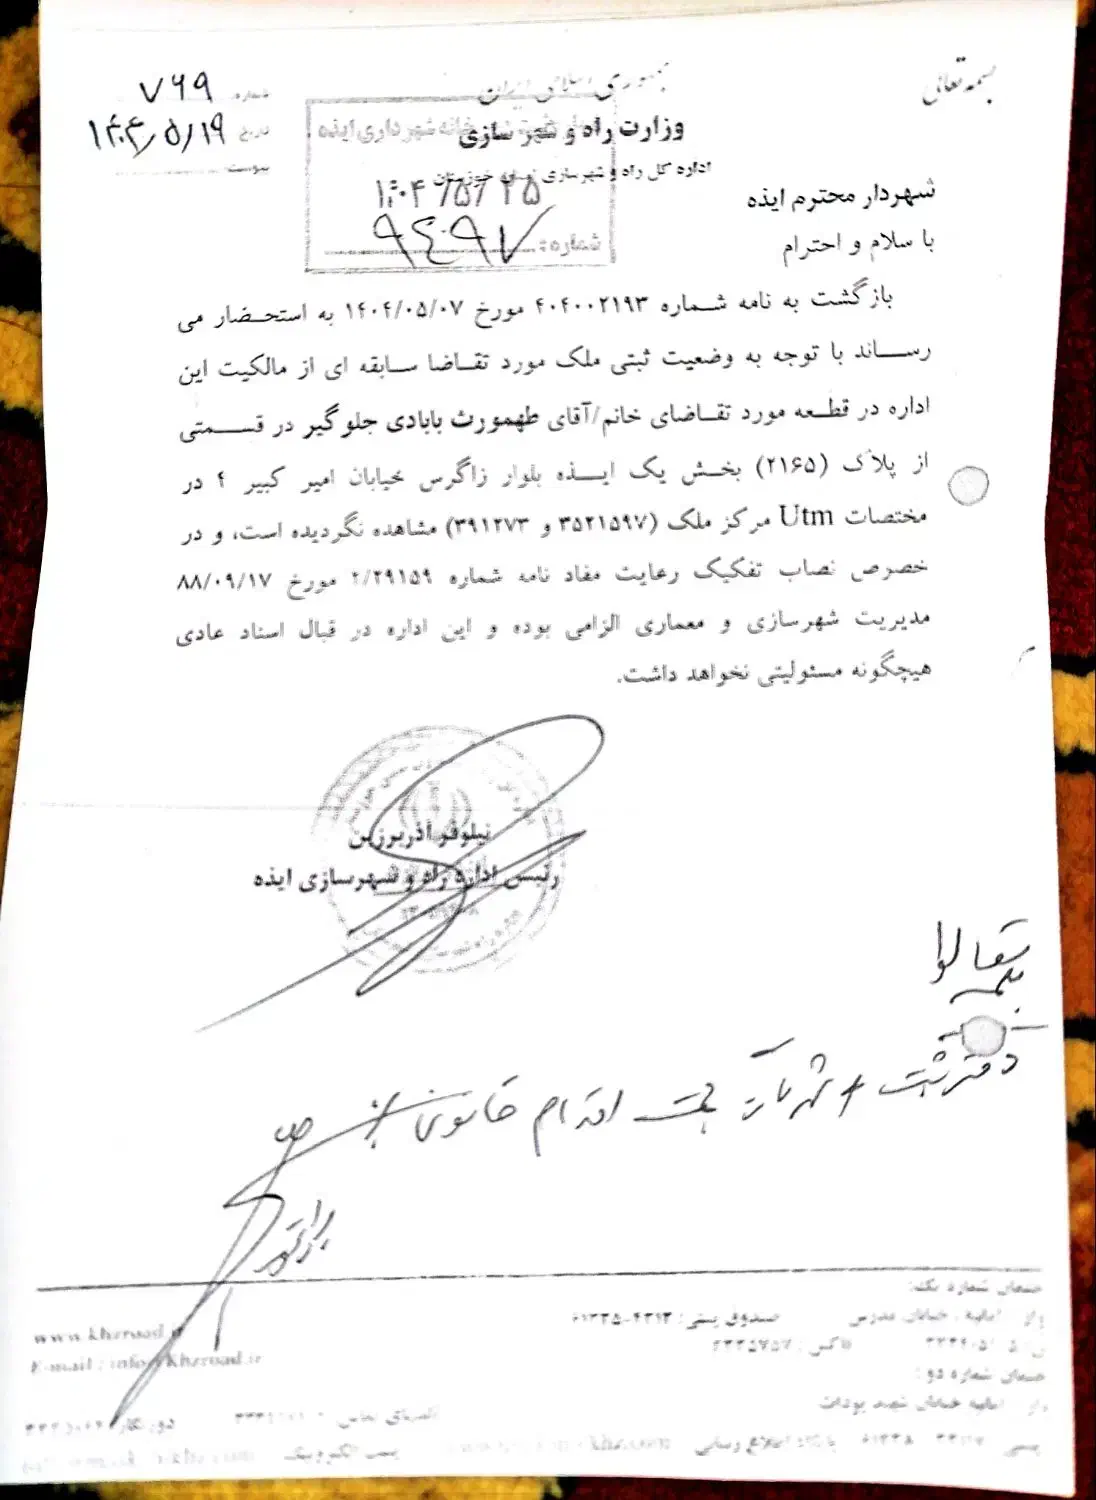 بسمه تعالی
جمهوری اسلامی ایران
وزارت راه و شهرسازی
اداره کل راه و شهرسازی استان خوزستان
شماره: ۷۶۹
تاریخ ۱۴۰۴/۵/۱۹
پیوست:
شهرداری ایذه
۱۴۰۴/۵/۲۵
شماره: ۹۴۹۷
شهردار محترم ایذه
با سلام و احترام
بازگشت به نامه شماره ۴۰۴۰۰۲۱۹۳ مورخ ۱۴۰۴/۰۵/۰۷ به استحضار می
رساند با توجه به وضعیت ثبتی ملک مورد تقاضا سابقه ای از مالکیت این
اداره در قطعه مورد تقاضای خانم/آقای طهمورث بابادی جلوگیر در قسمتی
از پلاک (۲۱۶۵) بخش یک ایذه بلوار زاگرس خیابان امیر کبیر ۴ در
مختصات Utm مرکز ملک (۳۵۲۱۵۹۷ و ۳۹۱۲۷۳) مشاهده نگردیده است، و در
خصوص نصاب تفکیک رعایت مفاد نامه شماره ۲/۲۹۱۵۹ مورخ ۸۸/۰۹/۱۷
مدیریت شهرسازی و معماری الزامی بوده و این اداره در قبال اسناد عادی
هیچگونه مسئولیتی نخواهد داشت.
نیلوفر آذربرزین
رئیس اداره راه و شهرسازی ایذه
دفتر ثبت
جهت اقدام قانونی
ساختمان شماره یک:
امانیه ، خیابان مدرس
صندوق پستی: ۴۳۱۳-۶۱۳۳۵
فاکس:
www.khzroad.ir
E-mail : info@Khzroad.ir
ساختمان شماره دو:
امانیه خیابان شهید بودات
تلفنهای تماس
دورنگار
پایگاه اطلاع رسانی
پست الکترونیک